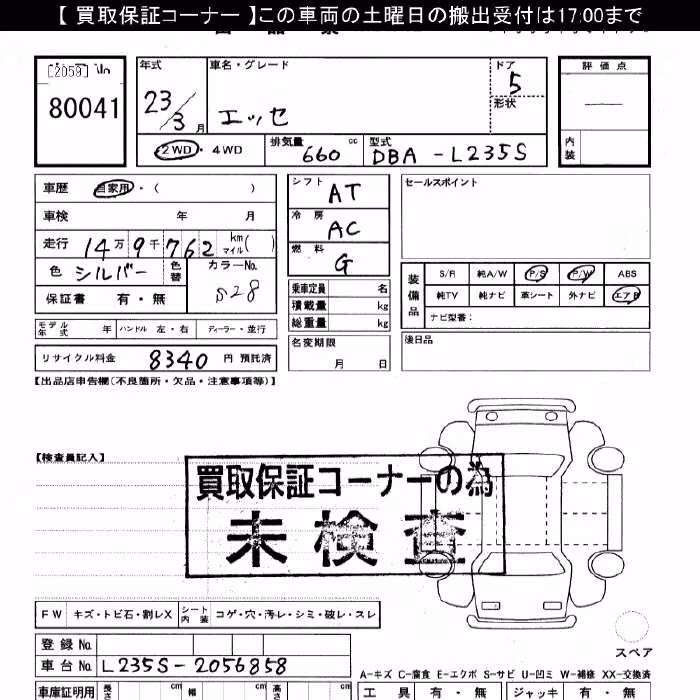 【 買取保証コーナー 】この車両の土曜日の搬出受付は17:00まで
[2059]
80041
年式
23/3月
車名・グレード
エッセ
ドア
5
形状
評価点
内装
2WD・4WD
排気量 660 cc
型式 DBA-L235S
車歴 自家用・( )
車検 年 月
走行 14万9千762 km マイル( )
色 シルバー 色替
カラーNo. S28
保証書 有・無
シフト AT
冷房 AC
燃料 G
乗車定員 名
積載量 kg
総重量 kg
セールスポイント
装備品
S/R 純A/W P/S P/W ABS
純TV 純ナビ 革シート 外ナビ エアB
ナビ型番:
モデル年式 年 ハンドル 左・右 ディーラー・並行
リサイクル料金 8340 円 預託済
名変期限
月 日
後日品
【出品店申告欄(不良箇所・欠品・注意事項等)】
【検査員記入】
買取保証コーナーの為
未検査
FW キズ・トビ石・割レX シート内装 コゲ・穴・汚レ・シミ・破レ・スレ
登録No.
車台No. L235S-2056858
スペア
A-キズ C-腐食 E-エクボ S-サビ U-凹ミ W-補修 XX-交換済
車庫証明用 長さ cm 幅 cm 高さ cm
工具 有・無 ジャッキ 有・無